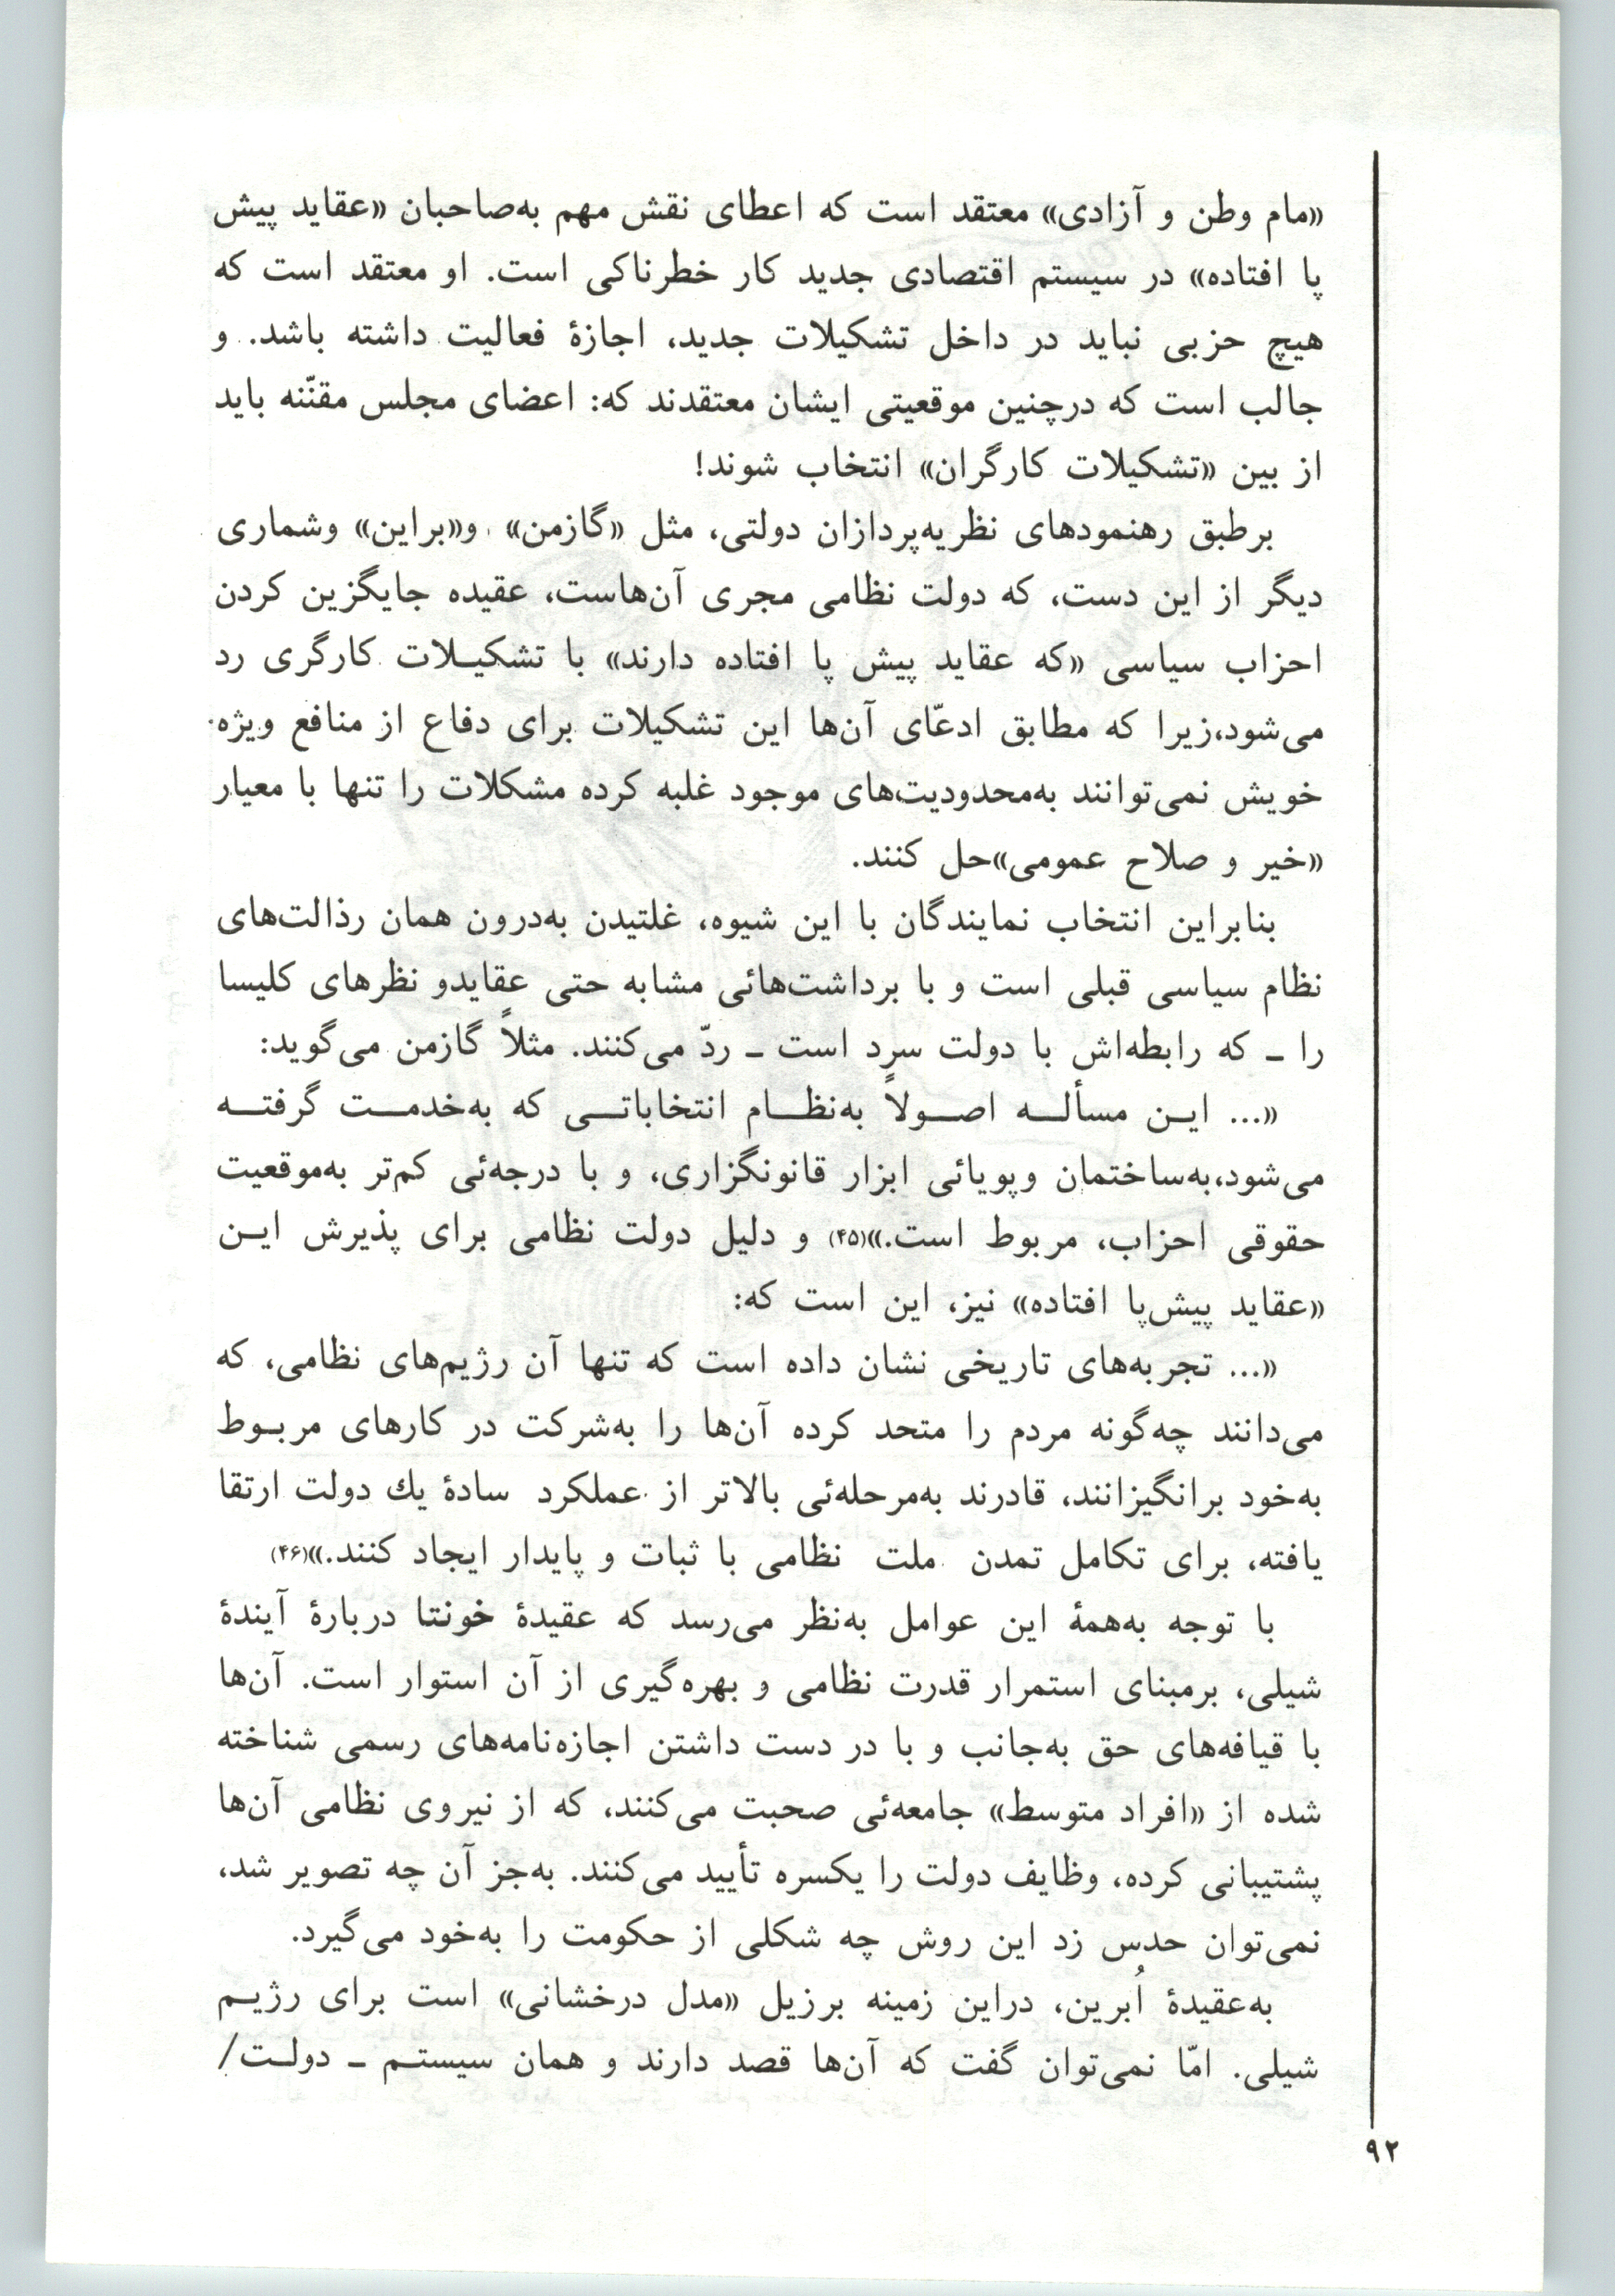 «مام وطن و آزادی» معتقد است که اعطای نقش مهم به‌صاحبان «عقاید پیش
پا افتاده» در سیستم اقتصادی جدید کار خطرناکی است. او معتقد است که
هیچ حزبی نباید در داخل تشکیلات جدید، اجازهٔ فعالیت داشته باشد. و
جالب است که درچنین موقعیتی ایشان معتقدند که: اعضای مجلس مقنّنه باید
از بین «تشکیلات کارگران» انتخاب شوند!
برطبق رهنمودهای نظریه‌پردازان دولتی، مثل «گازمن» و«براین» وشماری
دیگر از این دست، که دولت نظامی مجری آن‌هاست، عقیده جایگزین کردن
احزاب سیاسی «که عقاید پیش پا افتاده دارند» با تشکیـلات کارگری رد
می‌شود،زیرا که مطابق ادعّای آن‌ها این تشکیلات برای دفاع از منافع ویژه
خویش نمی‌توانند به‌محدودیت‌های موجود غلبه کرده مشکلات را تنها با معیار
«خیر و صلاح عمومی»حل کنند.
بنابراین انتخاب نمایندگان با این شیوه، غلتیدن به‌درون همان رذالت‌های
نظام سیاسی قبلی است و با برداشت‌هائی مشابه حتی عقایدو نظرهای کلیسا
را ـ که رابطه‌اش با دولت سرد است ـ ردّ می‌کنند. مثلاً گازمن می‌گوید:
«... ایـن مسألـه اصـولاً به‌نظـام انتخاباتـی که به‌خدمـت گرفتـه
می‌شود،به‌ساختمان وپویائی ابزار قانونگزاری، و با درجه‌ئی کم‌تر به‌موقعیت
حقوقی احزاب، مربوط است.»(۴۵) و دلیل دولت نظامی برای پذیرش ایـن
«عقاید پیش‌پا افتاده» نیز، این است که:
«... تجربه‌های تاریخی نشان داده است که تنها آن رژیم‌های نظامی، که
می‌دانند چه‌گونه مردم را متحد کرده آن‌ها را به‌شرکت در کارهای مربـوط
به‌خود برانگیزانند، قادرند به‌مرحله‌ئی بالاتر از عملکرد سادهٔ یك دولت ارتقا
یافته، برای تکامل تمدن ملت نظامی با ثبات و پایدار ایجاد کنند.»(۴۶)
با توجه به‌همهٔ این عوامل به‌نظر می‌رسد که عقیدهٔ خونتا دربارهٔ آیندهٔ
شیلی، برمبنای استمرار قدرت نظامی و بهره‌گیری از آن استوار است. آن‌ها
با قیافه‌های حق به‌جانب و با در دست داشتن اجازه‌نامه‌های رسمی شناخته
شده از «افراد متوسط» جامعه‌ئی صحبت می‌کنند، که از نیروی نظامی آن‌ها
پشتیبانی کرده، وظایف دولت را یکسره تأیید می‌کنند. به‌جز آن چه تصویر شد،
نمی‌توان حدس زد این روش چه شکلی از حکومت را به‌خود می‌گیرد.
به‌عقیدهٔ اُبرین، دراین زمینه برزیل «مدل درخشانی» است برای رژیـم
شیلی. امّا نمی‌توان گفت که آن‌ها قصد دارند و همان سیستـم ـ دولـت/
۹۲